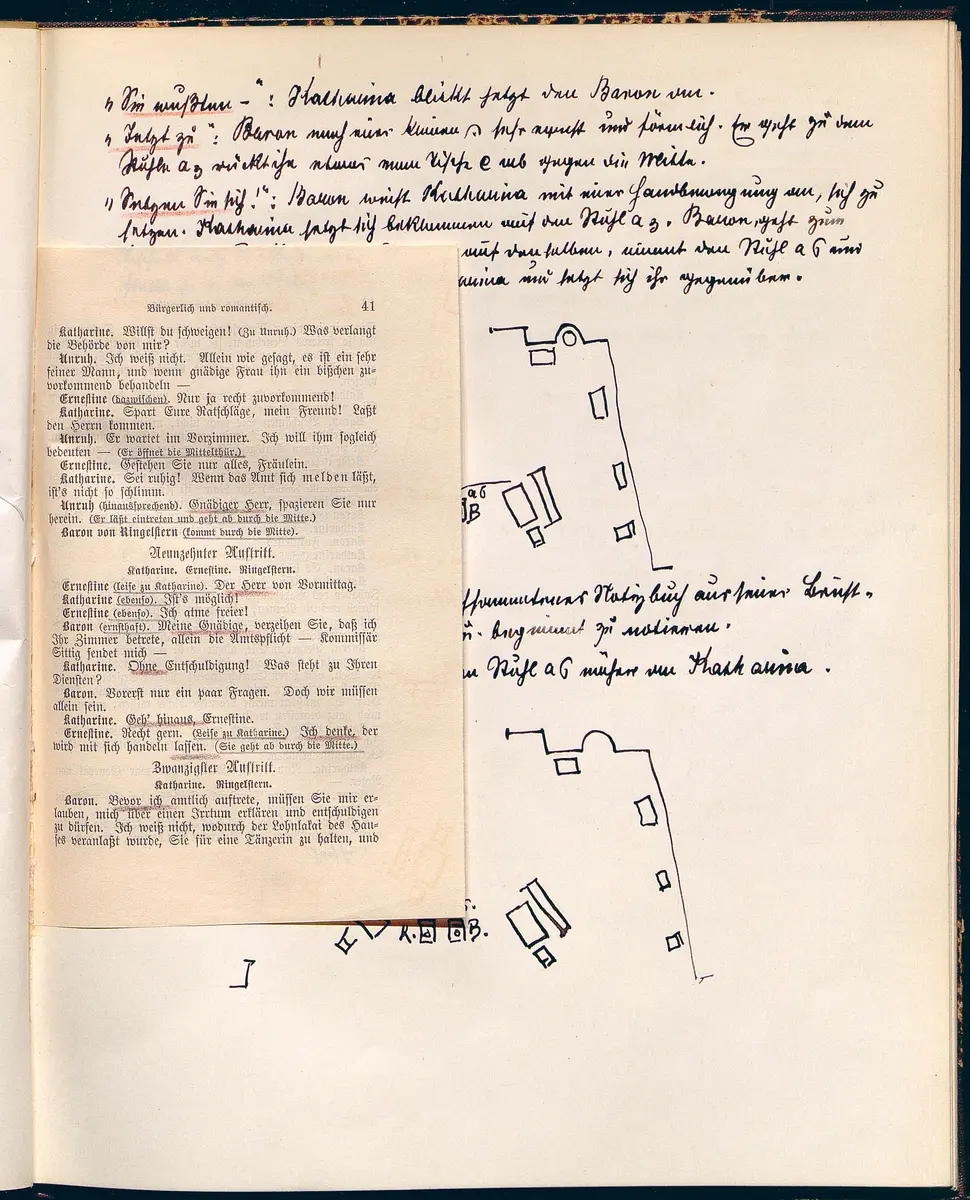 „Sie wußten –“: Katharina blickt jetzt den Baron an.
„Jetzt zu“: Baron nach einer kleinen sehr ernst und förmlich. Er geht zu dem
Stuhle a3 rückt ihn etwas vom Tische e ab gegen die Mitte.
„Setzen Sie sich!“: Baron weist Katharina mit einer Handbewegung an, sich zu
setzen. Katharina setzt sich beklommen auf den Stuhl a3. Baron geht zum
auf denselben, nimmt den Stuhl a6 und
und setzt sich ihr gegenüber.
Bürgerlich und romantisch. 41
Katharine. Willst du schweigen! (Zu Unruh.) Was verlangt
die Behörde von mir?
Unruh. Ich weiß nicht. Allein wie gesagt, es ist ein sehr
feiner Mann, und wenn gnädige Frau ihn ein bißchen zu-
vorkommend behandeln —
Ernestine (dazwischen). Nur ja recht zuvorkommend!
Katharine. Spart Eure Ratschläge, mein Freund! Laßt
den Herrn kommen.
Unruh. Er wartet im Vorzimmer. Ich will ihm sogleich
bedeuten — (Er öffnet die Mittelthür.)
Ernestine. Gestehen Sie nur alles, Fräulein.
Katharine. Sei ruhig! Wenn das Amt sich melden läßt,
ist's nicht so schlimm.
Unruh (hinaussprechend). Gnädiger Herr, spazieren Sie nur
herein. (Er läßt eintreten und geht ab durch die Mitte.)
Baron von Ringelstern (kommt durch die Mitte).
Neunzehnter Auftritt.
Katharine. Ernestine. Ringelstern.
Ernestine (leise zu Katharine). Der Herr von Vormittag.
Katharine (ebenso). Ist's möglich!
Ernestine (ebenso). Ich atme freier!
Baron (ernsthaft). Meine Gnädige, verzeihen Sie, daß ich
Ihr Zimmer betrete, allein die Amtspflicht — Kommissär
Sittig sendet mich —
Katharine. Ohne Entschuldigung! Was steht zu Ihren
Diensten?
Baron. Vorerst nur ein paar Fragen. Doch wir müssen
allein sein.
Katharine. Geh' hinaus, Ernestine.
Ernestine. Recht gern. (Leise zu Katharine.) Ich denke, der
wird mit sich handeln lassen. (Sie geht ab durch die Mitte.)
Zwanzigster Auftritt.
Katharine. Ringelstern.
Baron. Bevor ich amtlich auftrete, müssen Sie mir er-
lauben, mich über einen Irrtum erklären und entschuldigen
zu dürfen. Ich weiß nicht, wodurch der Lohnlakai des Hau-
ses veranlaßt wurde, Sie für eine Tänzerin zu halten, und
a6
B
Notizbuch aus seiner Brust-
u. beginnt zu notieren.
Stuhl a6 näher an Katharina.
K. B.